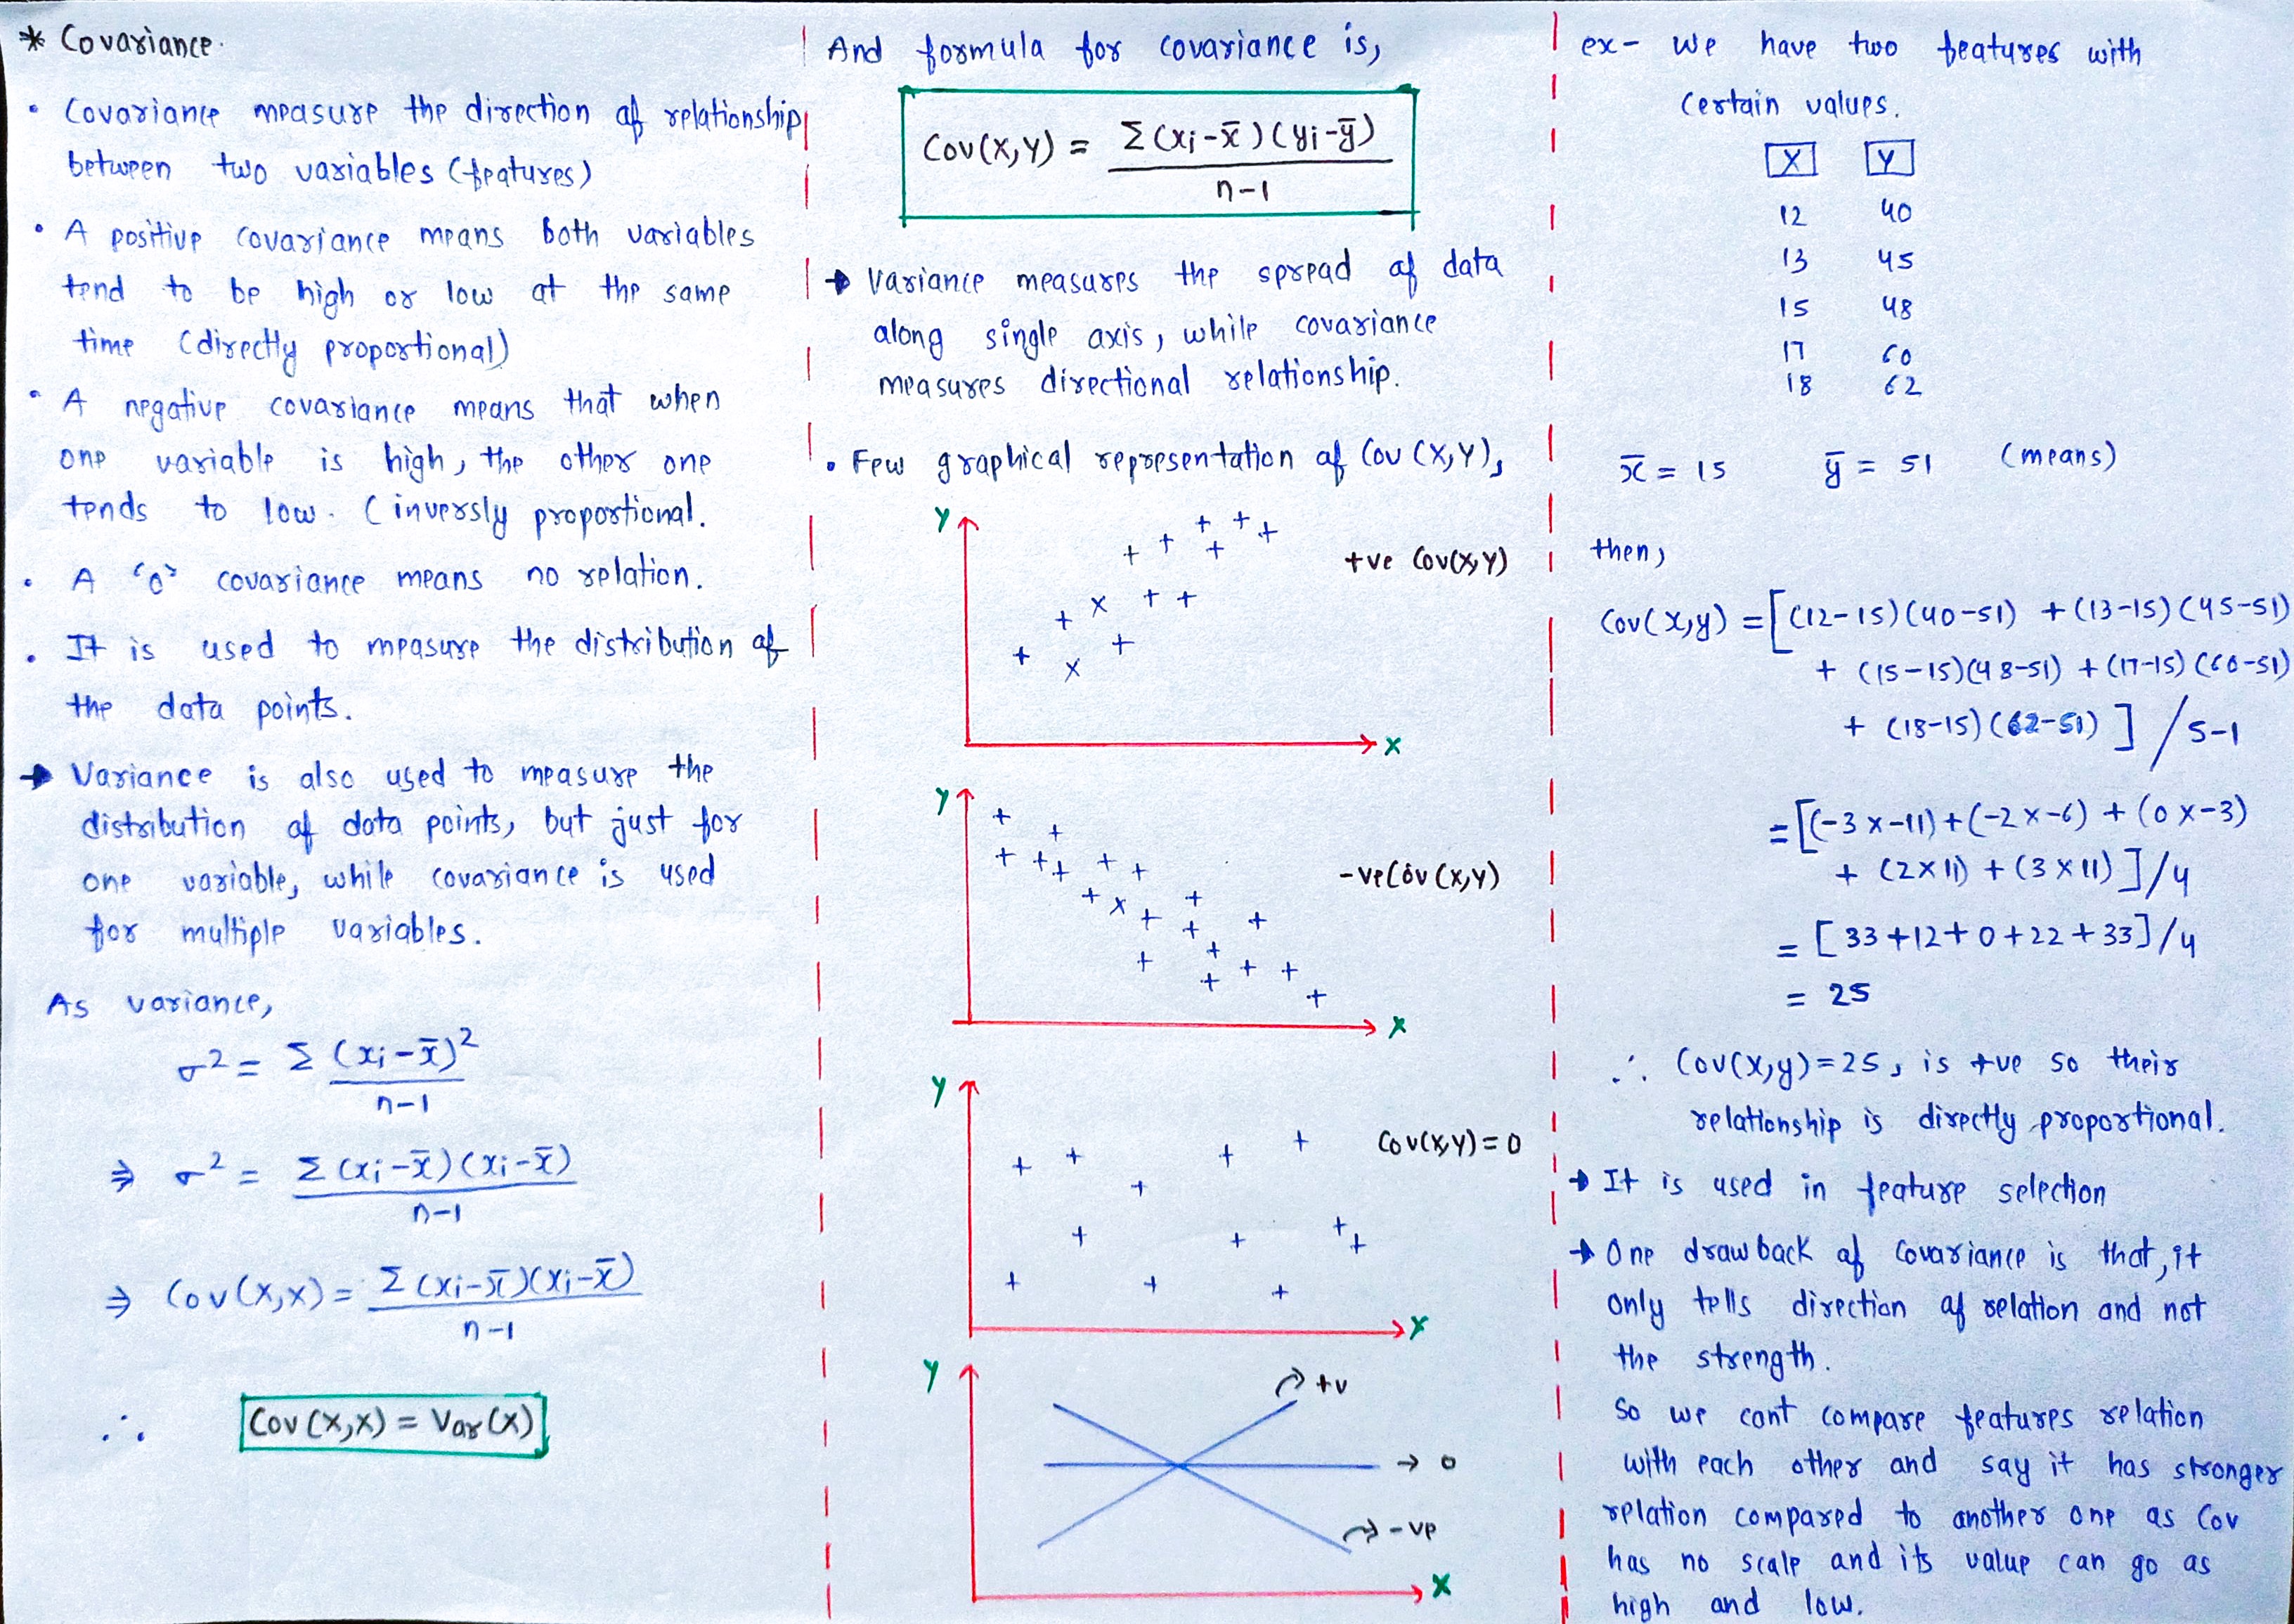 * Covariance.
• Covariance measure the direction of relationship
between two variables (features)
• A positive covariance means both variables
tend to be high or low at the same
time (directly proportional)
• A negative covariance means that when
one variable is high, the other one
tends to low. (inversly proportional.
• A '0' covariance means no relation.
• It is used to measure the distribution of
the data points.
→ Variance is also used to measure the
distribution of data points, but just for
one variable, while covariance is used
for multiple variables.
As variance,
σ² = Σ (xi-x̄)² / n-1
⇒ σ² = Σ(xi-x̄)(xi-x̄) / n-1
⇒ Cov(X,X) = Σ(xi-x̄)(xi-x̄) / n-1
∴ Cov(X,X) = Var(X)
And formula for covariance is,
Cov(X,Y) = Σ(xi-x̄)(yi-ȳ) / n-1
→ Variance measures the spread of data
along single axis, while covariance
measures directional relationship.
• Few graphical representation of Cov(X,Y),
Y
+ve Cov(X,Y)
X
Y
-ve Cov(X,Y)
X
Y
Cov(X,Y)=0
X
Y
+v
→ 0
-ve
X
ex- We have two features with
certain values.
X Y
12 40
13 45
15 48
17 60
18 62
x̄ = 15 ȳ = 51 (means)
then,
Cov(X,y) = [(12-15)(40-51) + (13-15)(45-51)
+ (15-15)(48-51) + (17-15)(60-51)
+ (18-15)(62-51)] / 5-1
= [(-3x-11)+(-2x-6) + (0x-3)
+ (2x11) + (3x11)]/4
= [33+12+0+22+33]/4
= 25
∴ Cov(X,y)=25, is +ve so their
relationship is directly proportional.
→ It is used in feature selection
→ One drawback of covariance is that, it
only tells direction of relation and not
the strength.
So we cant compare features relation
with each other and say it has stronger
relation compared to another one as Cov
has no scale and its value can go as
high and low.